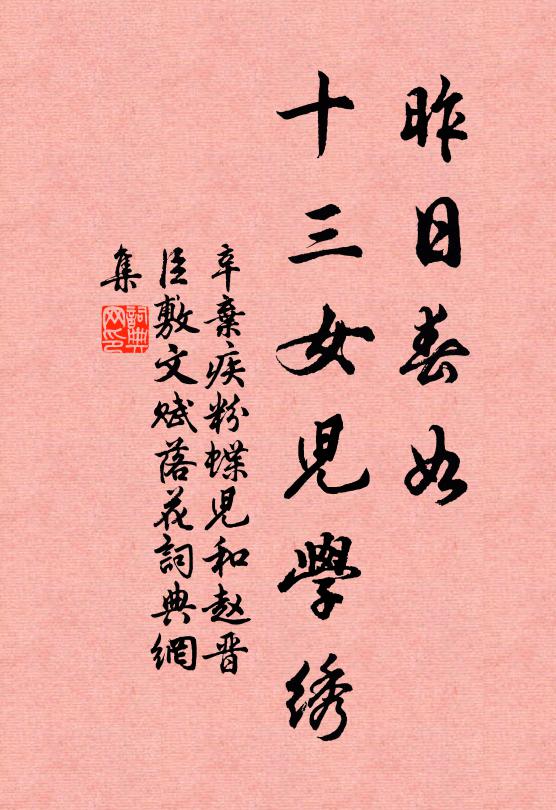 昨日春如
十三女兒學绣
辛棄疾粉蝶兒和赵晋
臣敷文赋落花詞典網
集
詞典網印